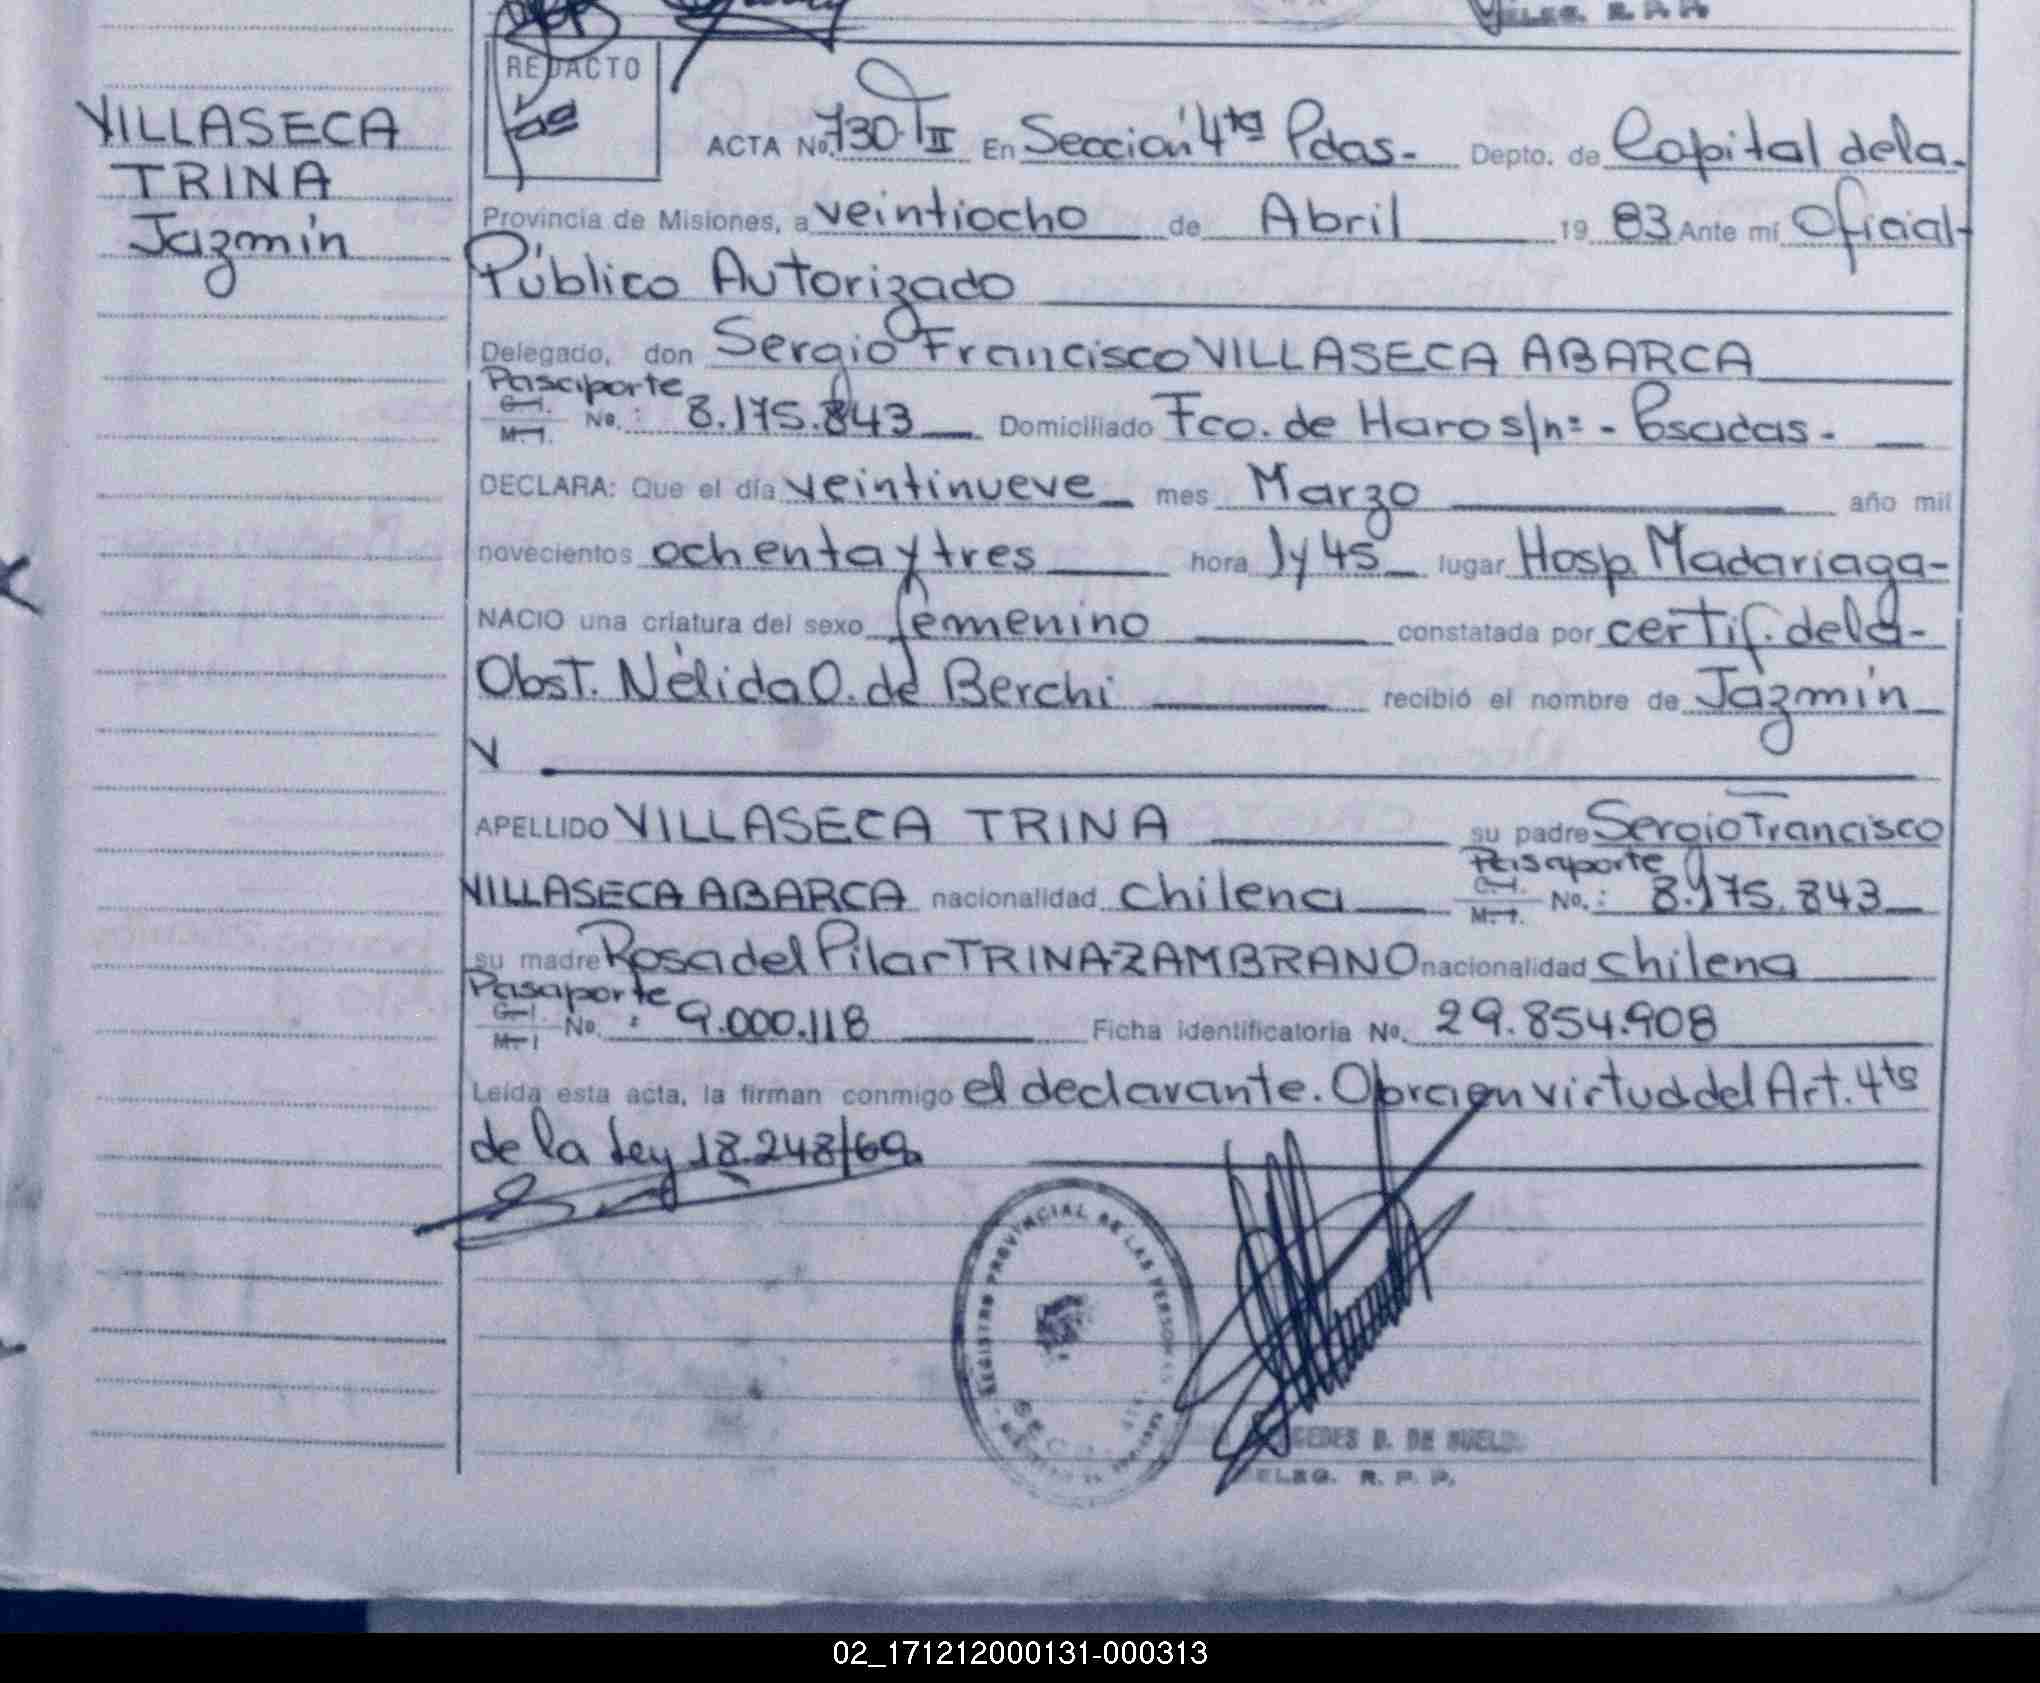 DELEG. R. P. P.
REDACTO
VILLASECA
TRINA
Jazmín
ACTA No. 730-T II En Sección 4ta Pdas.- Depto. de Capital de la.
Provincia de Misiones, a veintiocho de Abril 19 83 Ante mí Oficial-
Público Autorizado
Delegado, don Sergio Francisco VILLASECA ABARCA
Pasaporte
C.I. M.I. No.: 8.175.843 Domiciliado Fco. de Haro s/nº - Posadas.-
DECLARA: Que el día veintinueve mes Marzo año mil
novecientos ochenta y tres hora 1 y 45 lugar Hosp. Madariaga-
NACIO una criatura del sexo femenino constatada por certif. de la-
Obst. Nélida O. de Berchi recibió el nombre de Jazmín
APELLIDO VILLASECA TRINA su padre Sergio Francisco
Pasaporte
VILLASECA ABARCA nacionalidad chilena C.I. M.I. No.: 8.175.843
su madre Rosa del Pilar TRINA-ZAMBRANO nacionalidad chilena
Pasaporte
C.I. M.I. No. : 9.000.118 Ficha identificatoria No. 29.854.908
Leída esta acta, la firman conmigo el declarante. Obra en virtud del Art. 4to
de la Ley 18.248/69
REGISTRO PROVINCIAL DE LAS PERSONAS
D. DE
DELEG. R. P. P.
02_171212000131-000313